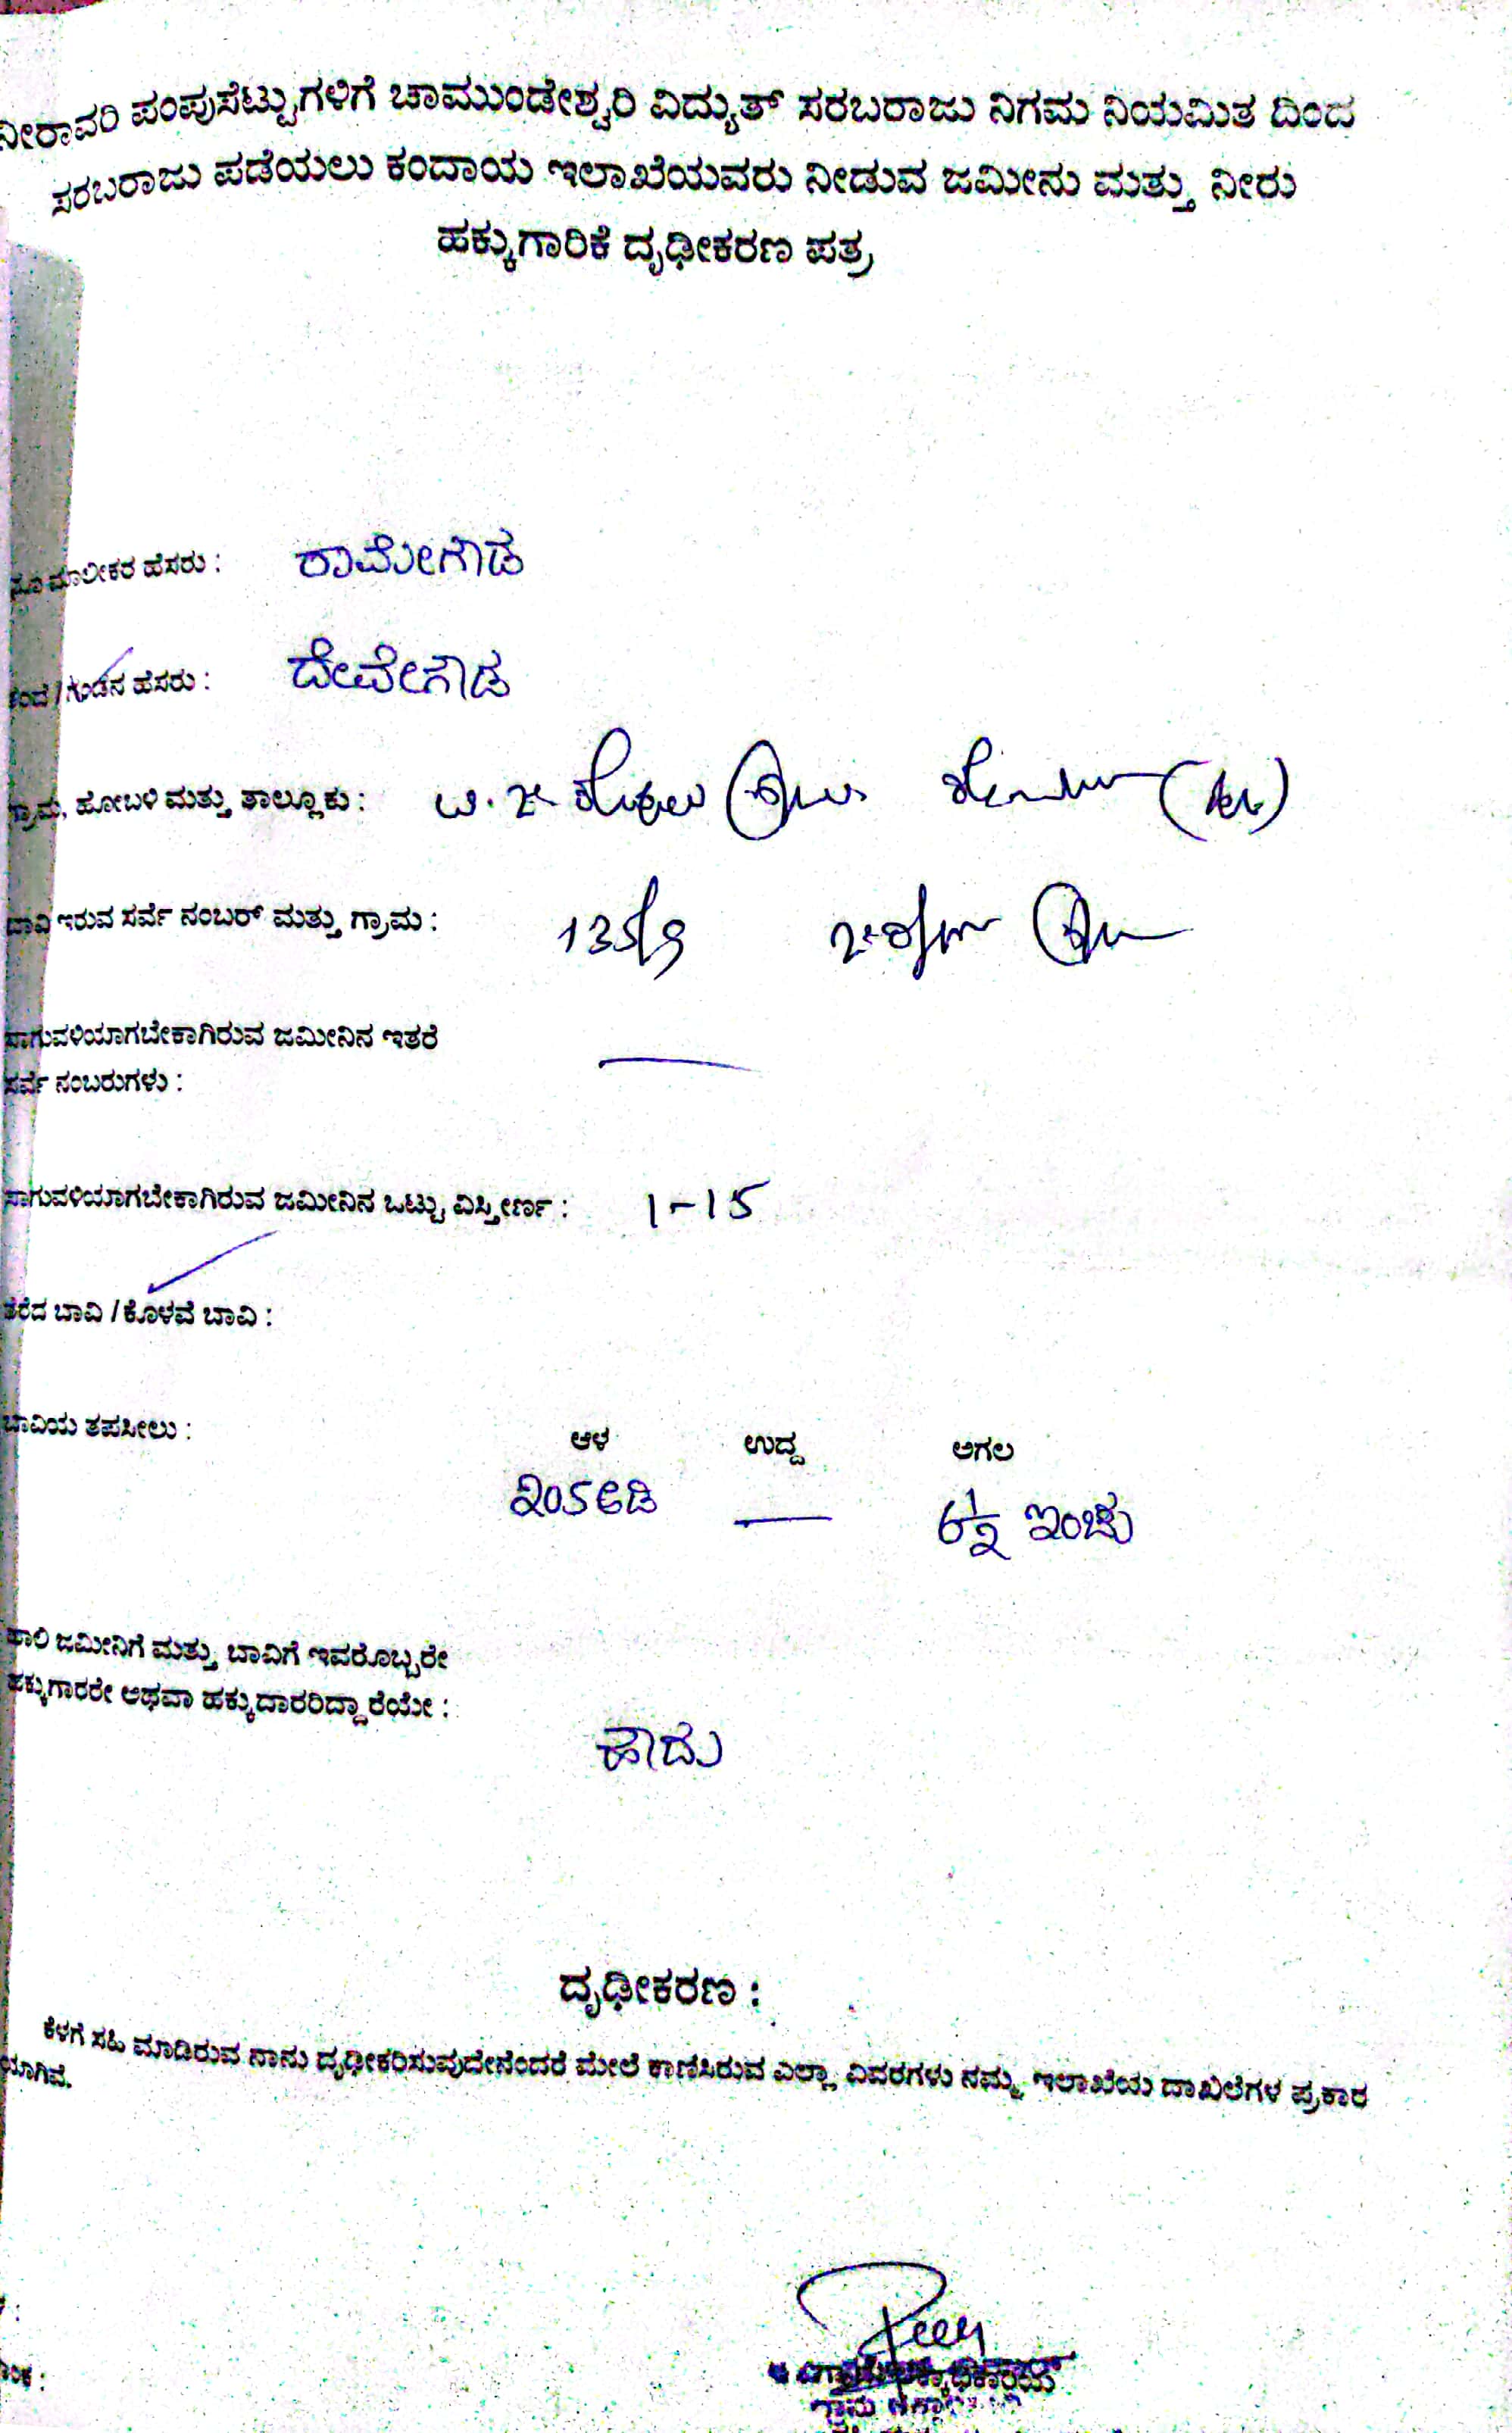 ನೀರಾವರಿ ಪಂಪುಸೆಟ್ಟುಗಳಿಗೆ ಚಾಮುಂಡೇಶ್ವರಿ ವಿದ್ಯುತ್ ಸರಬರಾಜು ನಿಗಮ ನಿಯಮಿತ ದಿಂದ
ಸರಬರಾಜು ಪಡೆಯಲು ಕಂದಾಯ ಇಲಾಖೆಯವರು ನೀಡುವ ಜಮೀನು ಮತ್ತು ನೀರು
ಹಕ್ಕುಗಾರಿಕೆ ದೃಢೀಕರಣ ಪತ್ರ
ಮಾಲೀಕರ ಹೆಸರು : ರಾಮೇಗೌಡ
/ಗಂಡನ ಹೆಸರು : ದೇವೇಗೌಡ
ಗ್ರಾಮ, ಹೋಬಳಿ ಮತ್ತು ತಾಲ್ಲೂಕು :
ಬಾವಿ ಇರುವ ಸರ್ವೆ ನಂಬರ್ ಮತ್ತು ಗ್ರಾಮ : 135/9
ಸಾಗುವಳಿಯಾಗಬೇಕಾಗಿರುವ ಜಮೀನಿನ ಇತರೆ
ಸರ್ವೆ ನಂಬರುಗಳು :
ಸಾಗುವಳಿಯಾಗಬೇಕಾಗಿರುವ ಜಮೀನಿನ ಒಟ್ಟು ವಿಸ್ತೀರ್ಣ : 1-15
ತೆರೆದ ಬಾವಿ / ಕೊಳವೆ ಬಾವಿ :
ಬಾವಿಯ ತಪಸೀಲು : ಆಳ ಉದ್ದ ಅಗಲ
205 ಅಡಿ — 6½ ಇಂಚು
ಖಾಲಿ ಜಮೀನಿಗೆ ಮತ್ತು ಬಾವಿಗೆ ಇವರೊಬ್ಬರೇ
ಹಕ್ಕುಗಾರರೇ ಅಥವಾ ಹಕ್ಕುದಾರರಿದ್ದಾರೆಯೇ :
ಹೌದು
ದೃಢೀಕರಣ :
ಕೆಳಗೆ ಸಹಿ ಮಾಡಿರುವ ನಾನು ದೃಢೀಕರಿಸುವುದೇನೆಂದರೆ ಮೇಲೆ ಕಾಣಿಸಿರುವ ಎಲ್ಲಾ ವಿವರಗಳು ನಮ್ಮ ಇಲಾಖೆಯ ದಾಖಲೆಗಳ ಪ್ರಕಾರ
ಗ್ರಾಮ